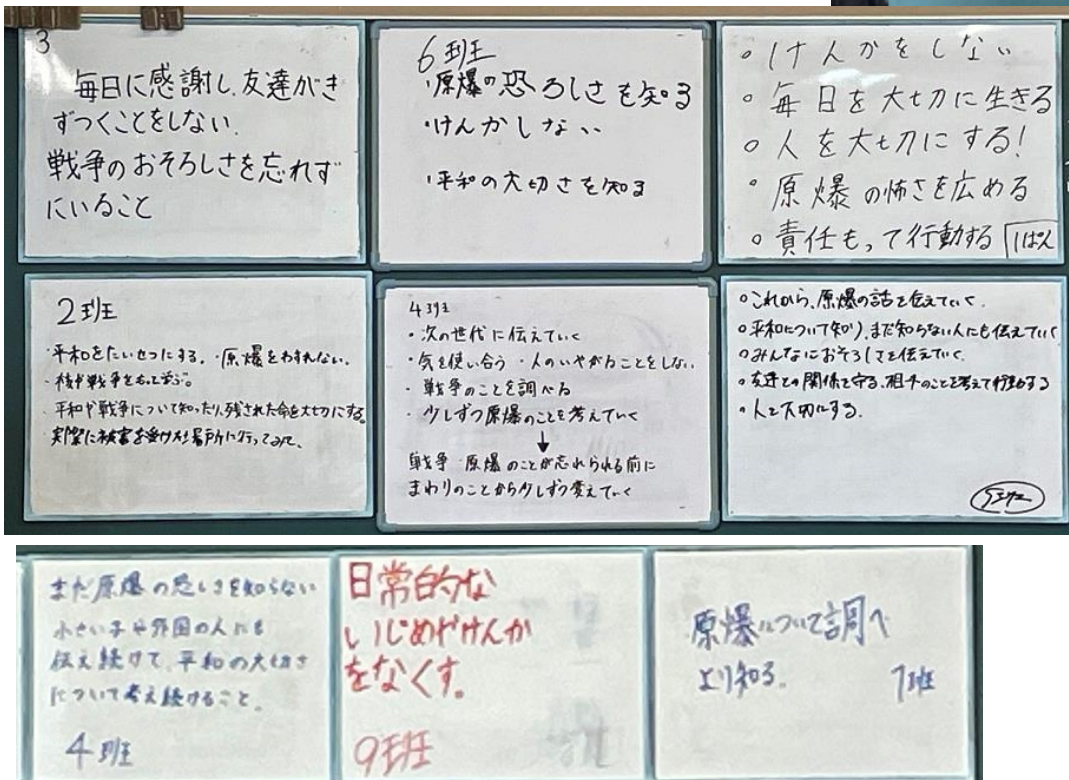 3
毎日に感謝し、友達がき
ずつくことをしない.
戦争のおそろしさを忘れず
にいること
6班
・原爆の恐ろしさを知る
・けんかしない
・平和の大切さを知る
○けんかをしない
○毎日を大切に生きる
○人を大切にする!
○原爆の怖さを広める
○責任もって行動する 1ぱん
2班
・平和をたいせつにする。・原爆をわすれない。
・核や戦争をもっと学ぶ。
・平和や戦争について知ったり、残された命を大切にする。
・実際に被害を受けた場所に行ってみて、
4班
・次の世代に伝えていく
・気を使い合う ・人のいやがることをしない
・戦争のことを調べる
・少しずつ原爆のことを考えていく
↓
戦争・原爆のことが忘れられる前に
まわりのことから少しずつ変えていく
○これから、原爆の話を伝えていく.
○平和について知り、まだ知らない人にも伝えていく
○みんなにおそろしさを伝えていく.
○友達との関係を守る、相手のことを考えて行動する
○人を大切にする.
まだ原爆の恐しさを知らない
小さい子や外国の人にも
伝え続けて、平和の大切さ
について考え続けること。
4班
日常的な
いじめやけんか
をなくす。
9班
原爆について調べ
より知る.
7班